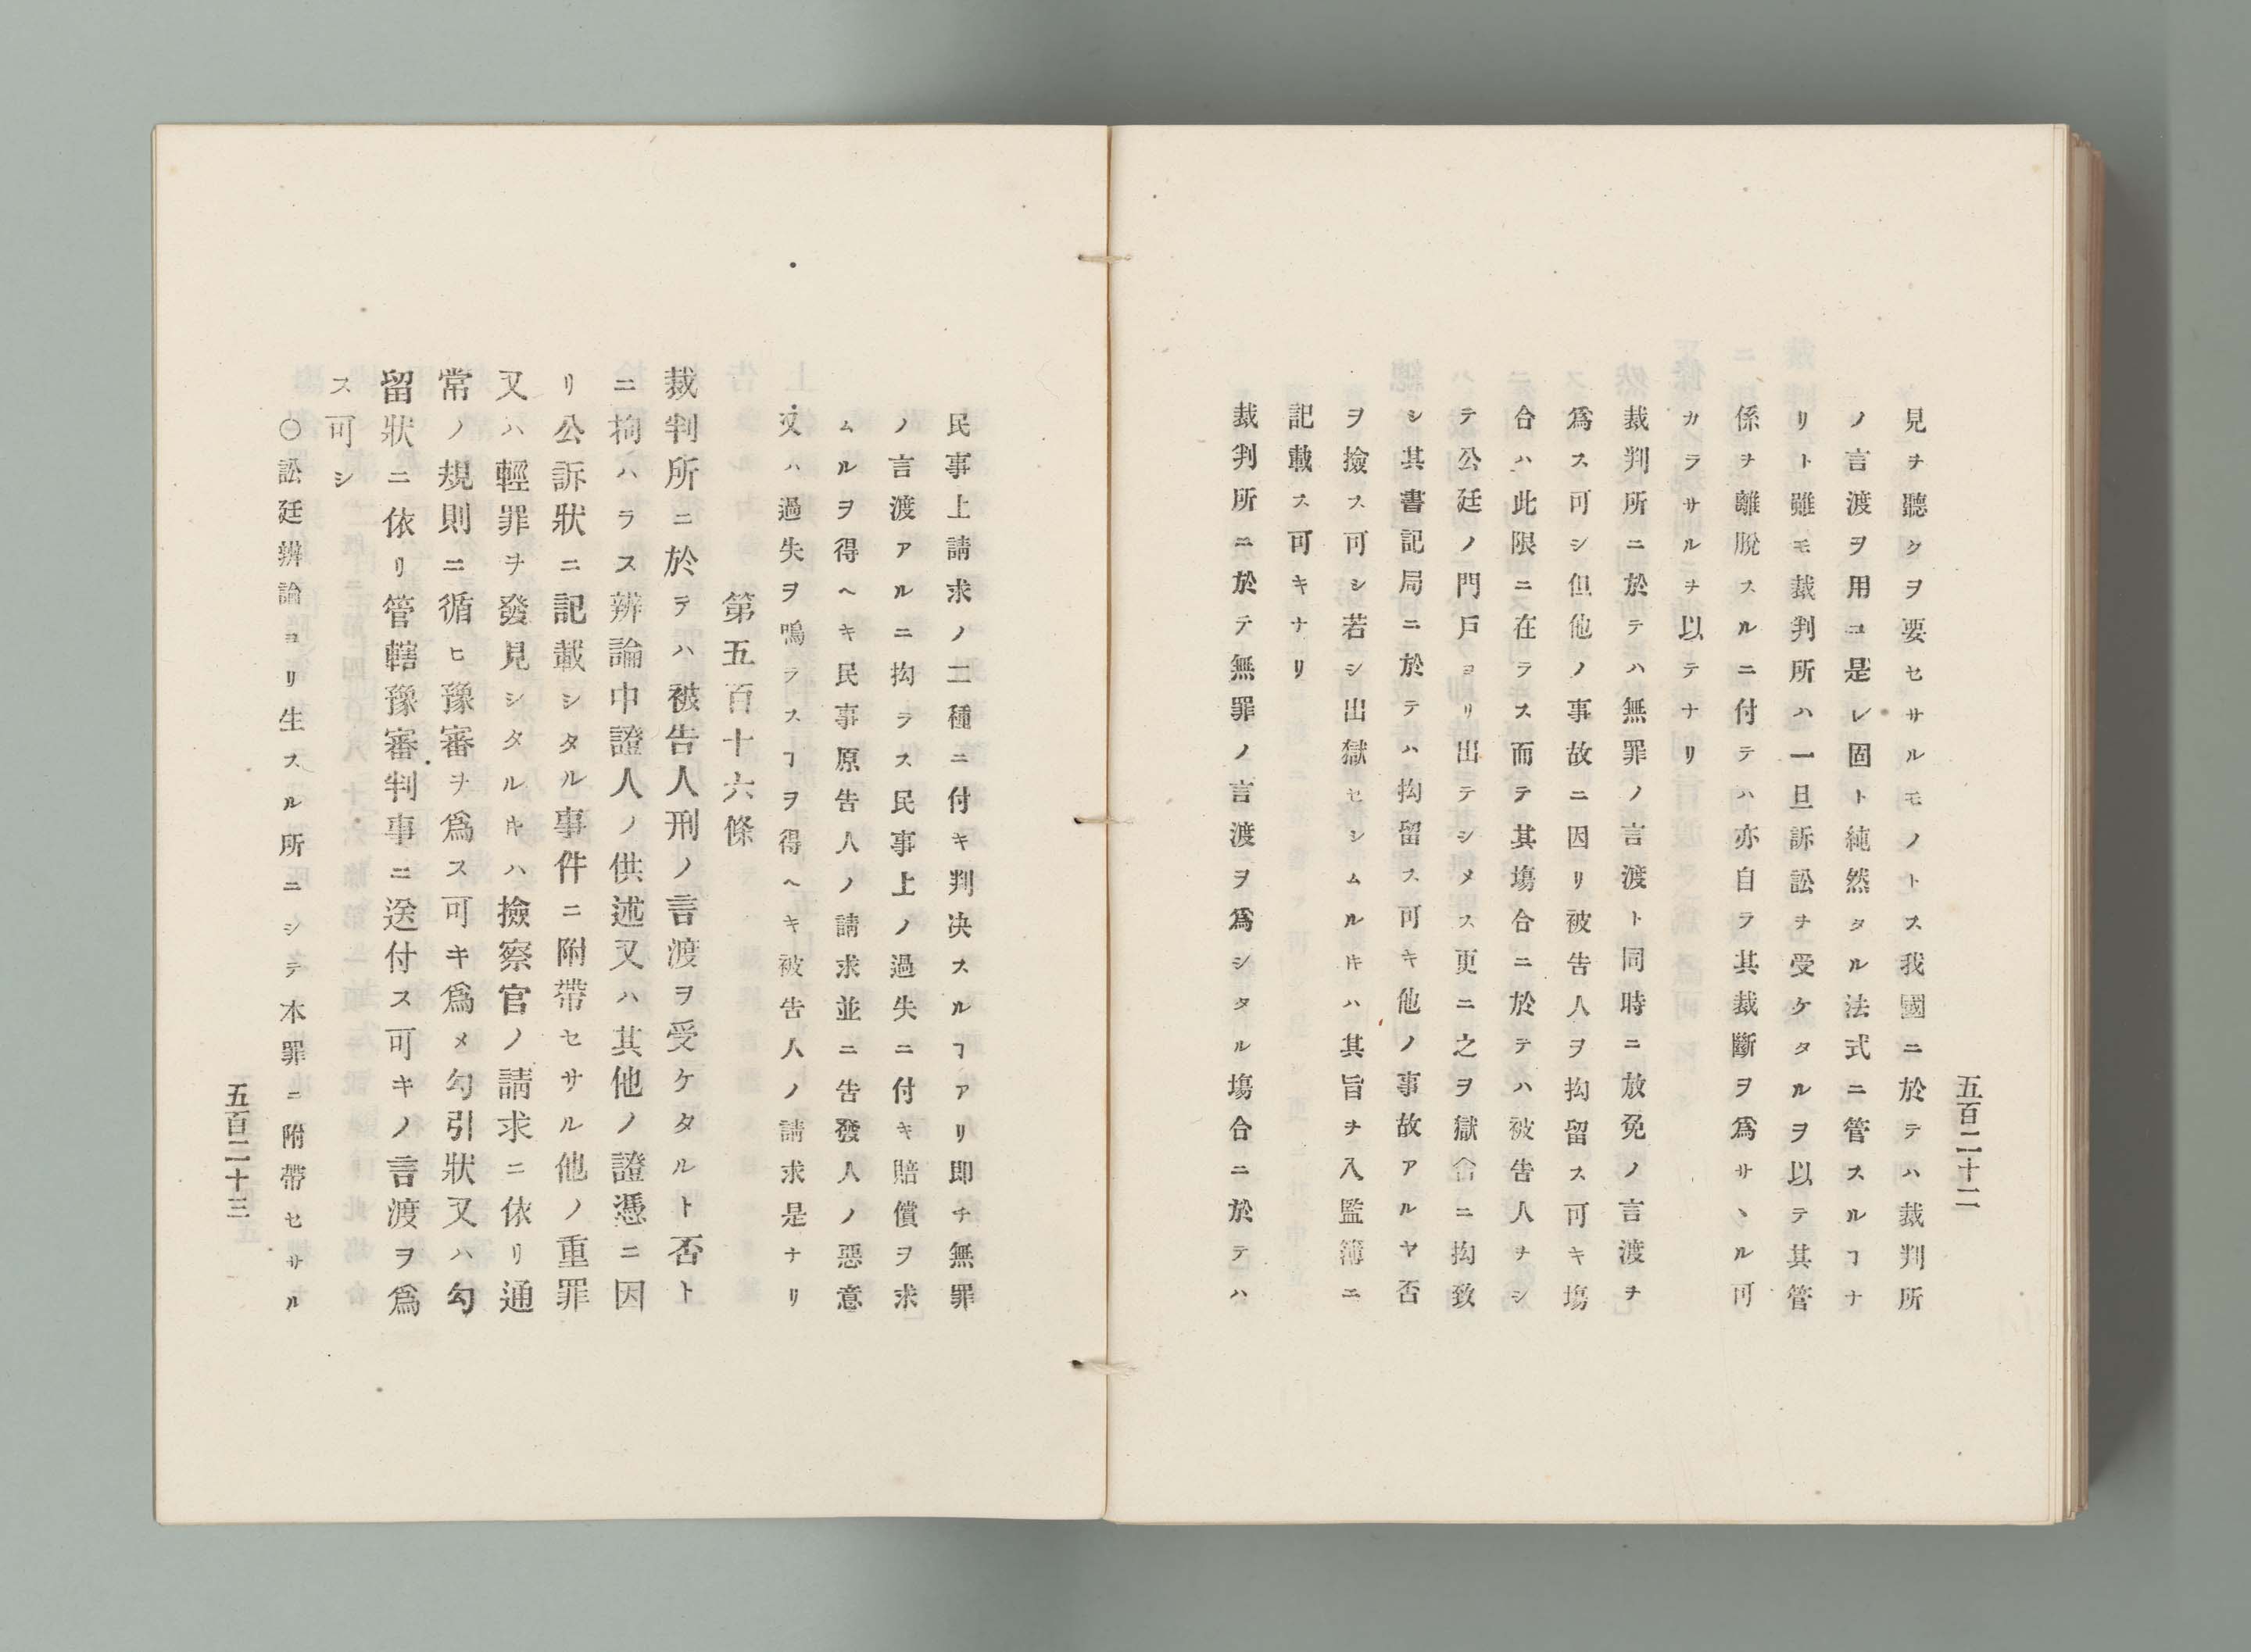 五百二十二
見ヲ聽クヲ要セサルモノトス我國ニ於テハ裁判所
ノ言渡ヲ用ユ是レ固ト純然タル法式ニ管スルヿナ
リト雖モ裁判所ハ一旦訴訟ヲ受ケタルヲ以テ其管
係ヲ離脫スルニ付テハ亦自ラ其裁斷ヲ爲サヽル可
カラサルヲ以テナリ
裁判所ニ於テハ無罪ノ言渡ト同時ニ放免ノ言渡ヲ
爲ス可シ但他ノ事故ニ因リ被告人ヲ拘留ス可キ塲
合ハ此限ニ在ラス而テ其塲合ニ於テハ被告人ヲシ
テ公廷ノ門戶ヨリ出テシメス更ニ之ヲ獄舍ニ拘致
シ其書記局ニ於テハ拘留ス可キ他ノ事故アルヤ否
ヲ撿ス可シ若シ出獄セシムルキハ其旨ヲ入監簿ニ
記載ス可キナリ
裁判所ニ於テ無罪ノ言渡ヲ爲シタル塲合ニ於テハ
民事上請求ノ二種ニ付キ判决スルヿアリ即チ無罪
ノ言渡アルニ拘ラス民事上ノ過失ニ付キ賠償ヲ求
ムルヲ得ヘキ民事原告人ノ請求並ニ告發人ノ惡意
又ハ過失ヲ鳴ラスヿヲ得ヘキ被告人ノ請求是ナリ
第五百十六條
裁判所ニ於テハ被告人刑ノ言渡ヲ受ケタルト否ト
ニ拘ハラス辨論中證人ノ供述又ハ其他ノ證憑ニ因
リ公訴狀ニ記載シタル事件ニ附帶セサル他ノ重罪
又ハ輕罪ヲ發見シタルキハ撿察官ノ請求ニ依リ通
常ノ規則ニ循ヒ豫審ヲ爲ス可キ爲メ勾引狀又ハ勾
留狀ニ依リ管轄豫審判事ニ送付ス可キノ言渡ヲ爲
ス可シ
〇訟廷辨論ヨリ生スル所ニシテ本罪ニ附帶セサル
五百二十三